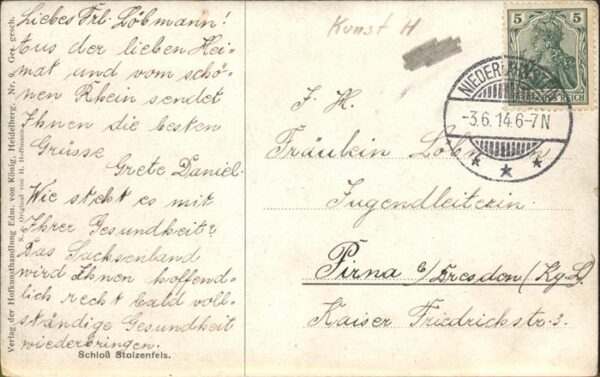 Liebes Frl. Löbmann!
Aus der lieben Hei-
mat und vom schö-
nen Rhein sendet
Ihnen die besten
Grüsse
Grete Daniel.
Wie steht es mit
Ihrer Gesundheit?
Das Sachsenland
wird Ihnen hoffend-
lich recht bald voll-
ständige Gesundheit
wiederbringen.
Schloß Stolzenfels.
Verlag der Hofkunsthandlung Edm. von König, Heidelberg. Nr. 9. Ges. gesch.
N. d. Original von H. Hoffmann.
Kunst H
5 5
REICH
-3.6.14.6-7N
I. H.
Fräulein
Jugendleiterin
Pirna b/Dresden (Kg. S.)
Kaiser Friedrichstr. 3.